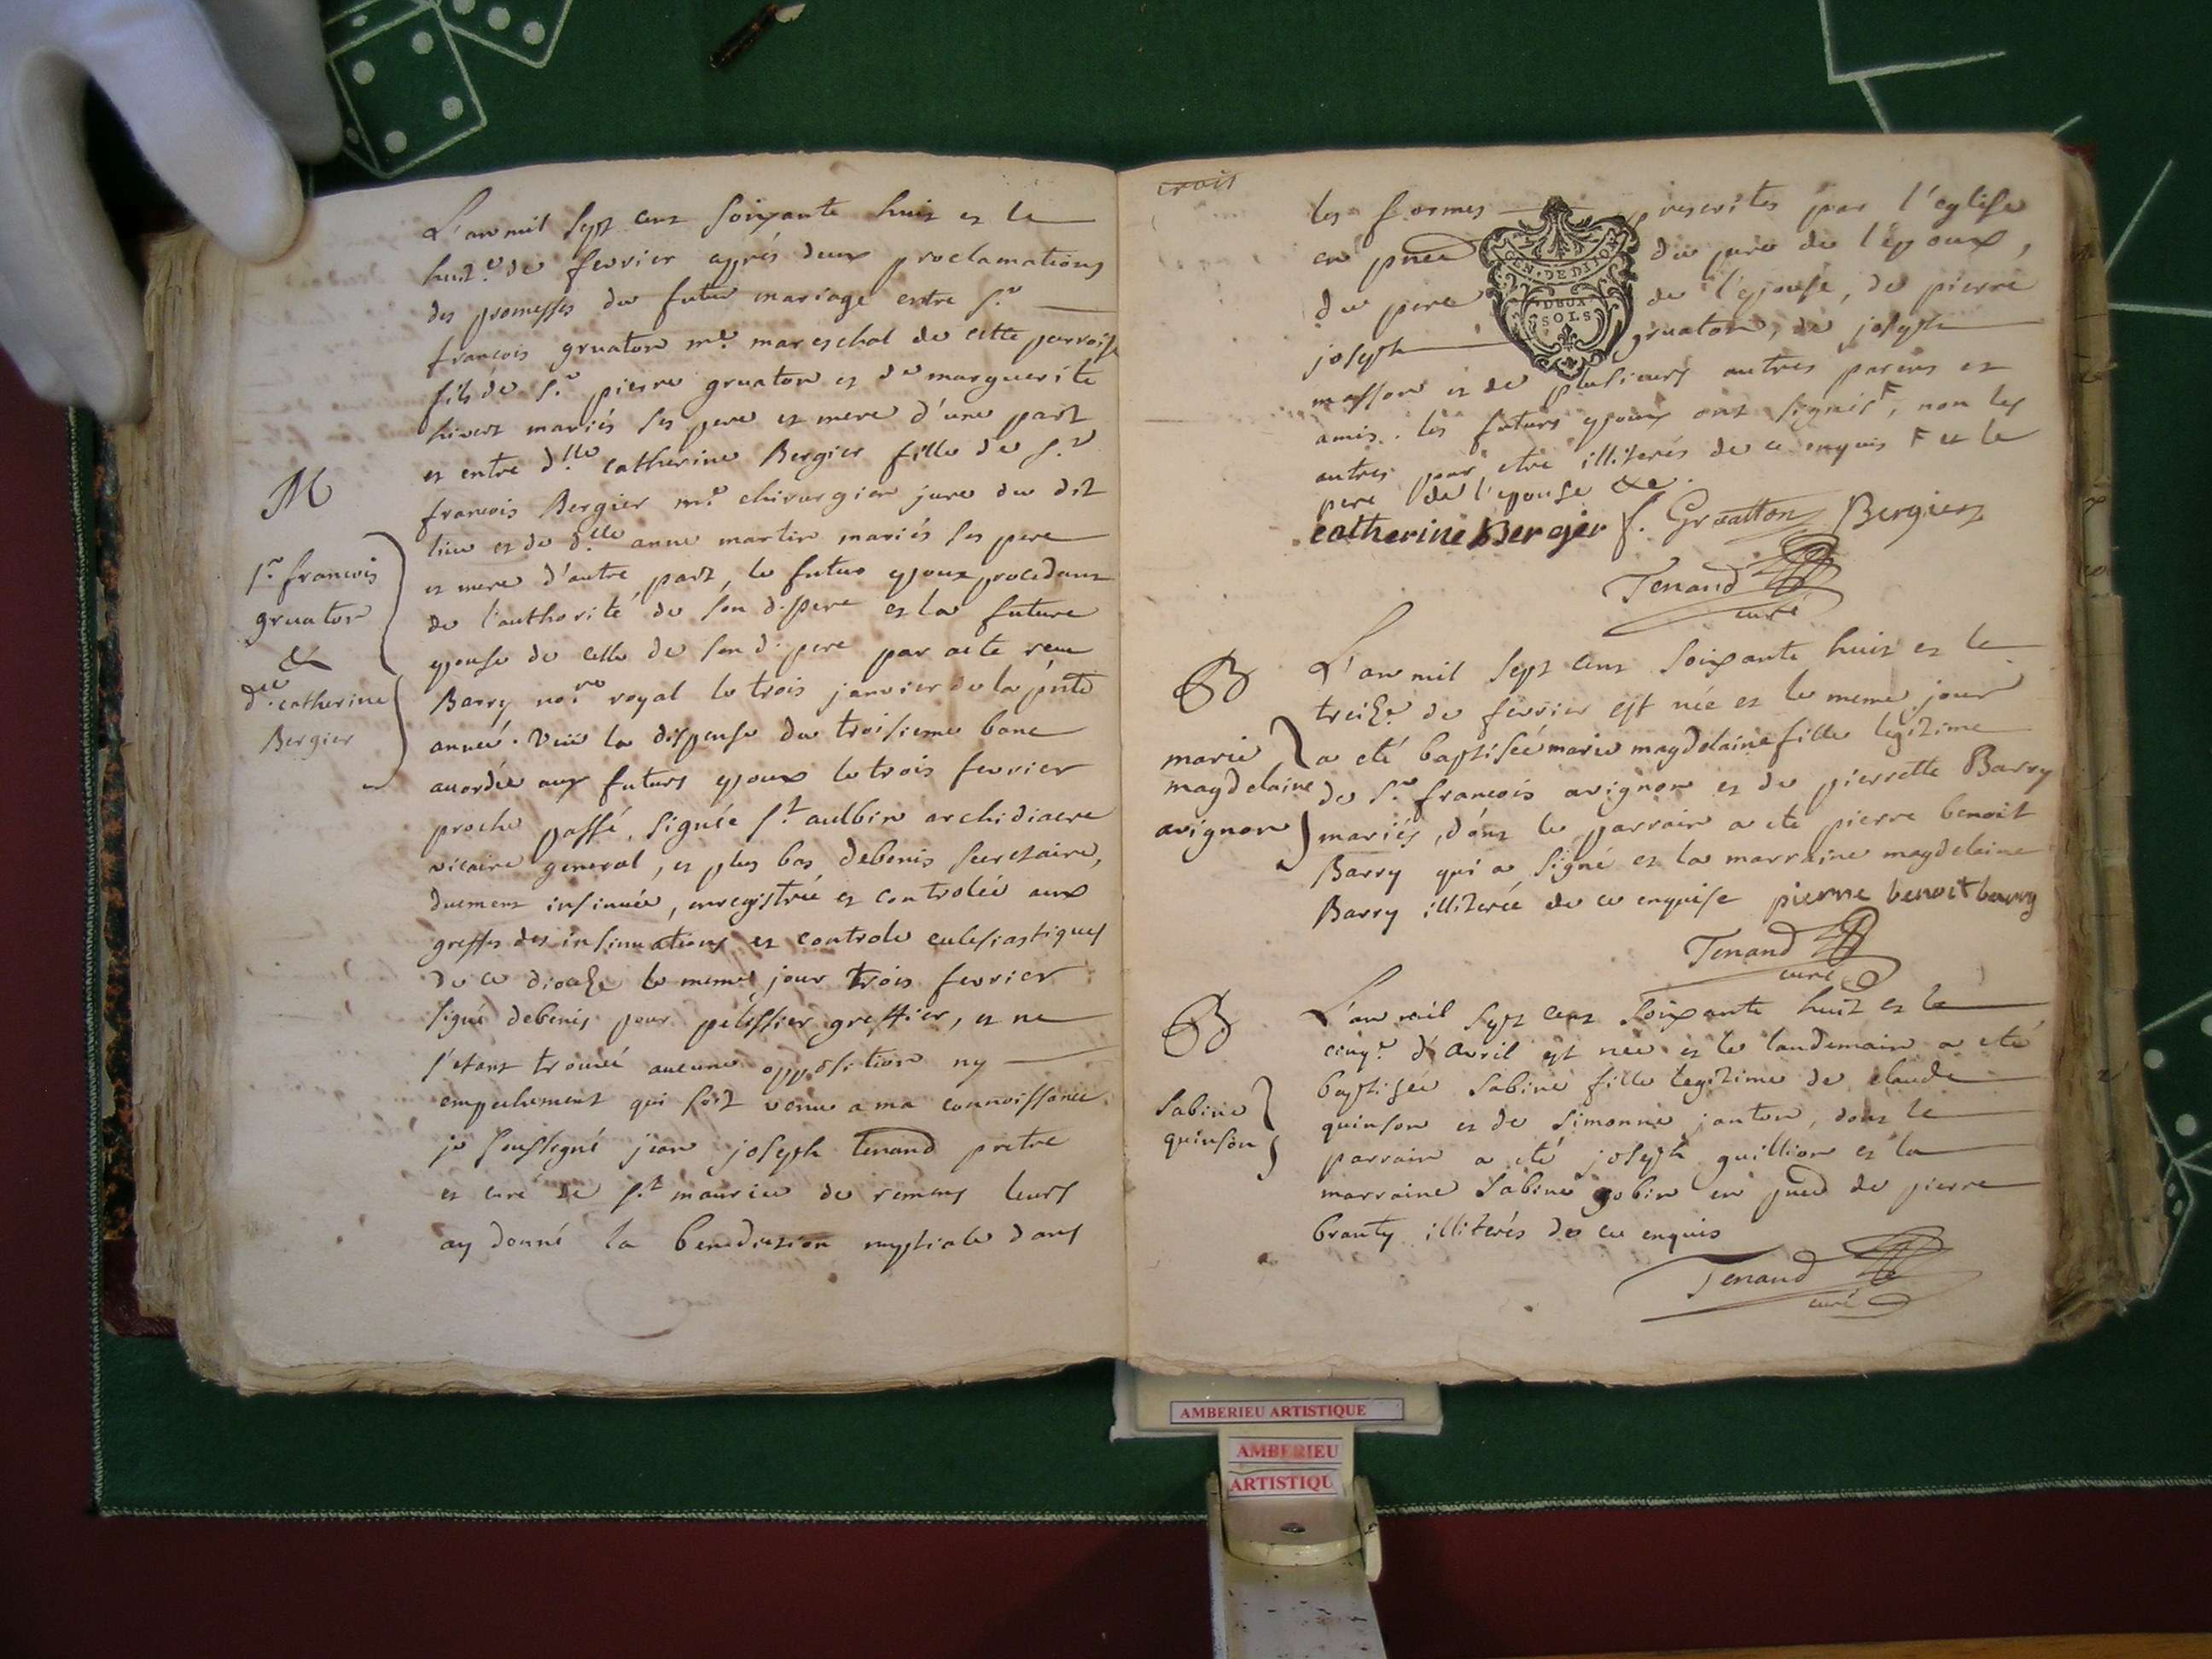 L'an mil sept cent soixante huit et le
huit.e de fevrier après deux proclamations
des promesses du futur mariage entre s.r
francois gruaton m.e mareschal de cette parroisse
fils de s.r pierre gruaton et d.e marguerite
hivert mariés ses pere et mere d'une part
et entre d.lle catherine Bergier fille de s.r
francois Bergier m.e chirurgien juré du dit
lieu et de d.elle anne martin mariés ses pere
et mere d'autre part, le futur epoux procedant
de l'authorité de son d. pere et la future
epouse de celle de son d. pere par acte receu
Barry no.re royal le trois janvier de la pnte
année. Veüe la dispense du troisieme banc
accordée aux futurs epoux le trois fevrier
proche passé, signée s.t aulbin archidiacre
vicaire general, et plus bas debenis secretaire,
duement insinuée, enregistrée et controlée aux
greffes des insinuations et controle eclesiastiques
de ce dioceze le meme jour trois fevrier
signé debenis pour pelissier greffier, et ne
s'etant trouvé aucune opposition ny
empechement qui soit venu a ma connoissance
je soussigné jean joseph tenand pretre
et curé de s.t maurice de remens leurs
ay donné la benediction nuptiale dans
M
s.r francois
gruaton
&
d.elle catherine
Bergier
les formes prescrites par l'eglise
en pnce du pere de l'epoux,
du pere de l'epouse, de pierre
joseph gruaton, de joseph
masson et de plusieurs autres parens et
amis. les futurs epoux ont signés F, non les
autres pour etre illiterés de ce enquis F et le
pere de l'epouse &c.
GEN. DE DIJON
DEUX
SOLS
catherine Bergier f. Gruatton Bergier
Tenand
curé
B
marie
magdelaine
avignon
L'an mil sept cent soixante huit et le
treiz.e de fevrier est née et le meme jour
a eté baptisée marie magdelaine fille legitime
de s.r francois avignon et de pierrette Barry
mariés, dont le parrain a eté pierre benoit
Barry qui a signé et la marraine magdelaine
Barry illiterée de ce enquise pierre benoit barry
Tenand
curé
B
sabine
quinson
L'an mil sept cent soixante huit et le
cinq.e d'avril est née et le landemain a eté
baptisée sabine fille legitime de claude
quinson et de simonne janton, dont le
parrain a eté joseph guillion et la
marraine sabine gobin en pnce de pierre
branty illiterés de ce enquis
Tenand
curé
AMBERIEU ARTISTIQUE
AMBERIEU
ARTISTIQU